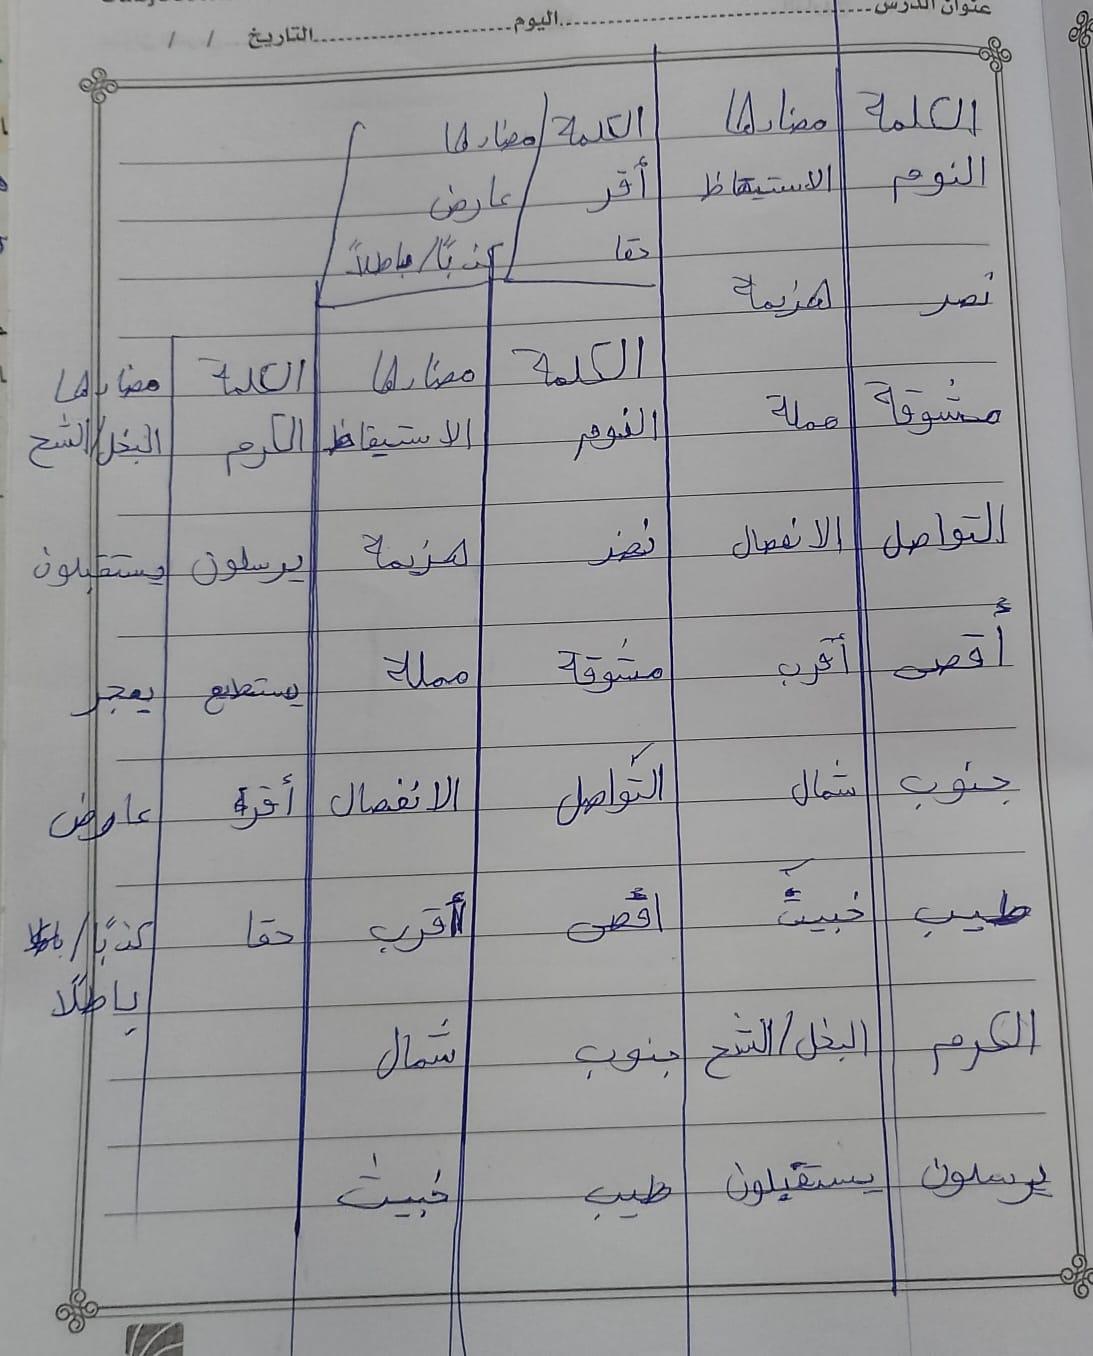 عنوان الدرس
اليوم
التاريخ / /
الكلمة مضادها
النوم الاستيقاظ
نصر هزيمة
مشوقة مملة
التواصل الانفصال
أقصى أقرب
جنوب شمال
طيب خبيث
الكرم البخل/الشح
يرسلون يستقبلون
الكلمة/مضادها
أقر عارض
حقا كذبًا/باطلاً
الكلمة مضادها
النوم الاستيقاظ
نصر هزيمة
مشوقة مملة
التواصل الانفصال
اقصى أقرب
جنوب شمال
طيب خبيث
الكلمة مضادها
الكرم البخل/الشح
يرسلون يستقبلون
يستطيع يعجز
أقر عارض
حقا كذبًا/
باطلًا